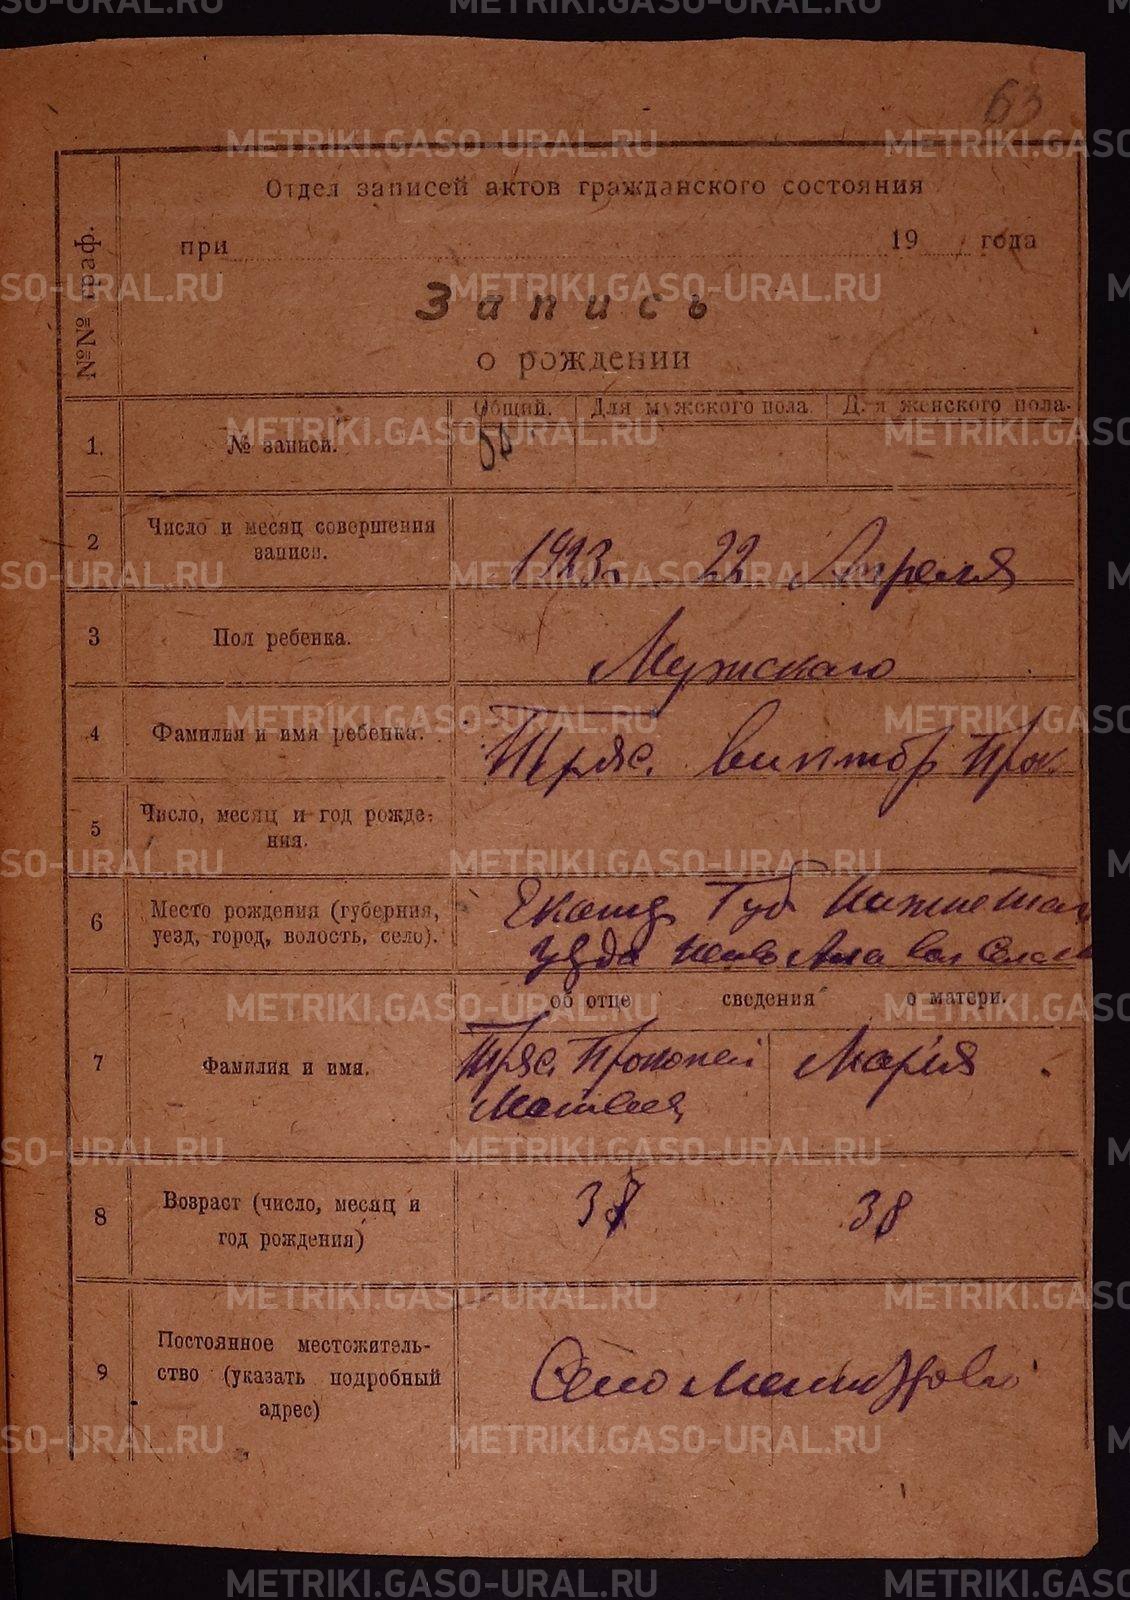 63
Отдел записей актов гражданского состояния
при 19 года
Запись
о рождении
№№ граф.
Общий. Для мужского пола. Для женского пола.
1. № записи.
2 Число и месяц совершения записи. 1923 г. 22 Апреля
3 Пол ребенка. Мужскаго
4 Фамилия и имя ребенка. Тряс. Виктор Прок.
5 Число, месяц и год рожде-
ния.
6 Место рождения (губерния, Екатер Губ Нижнетаг
уезд, город, волость, село). уезда
об отце сведения о матери.
7 Фамилия и имя. Тряс. Прокопей Мария
Матвеев
8 Возраст (число, месяц и 38
год рождения)
9 Постоянное местожитель-
ство (указать подробный Село
адрес)
METRIKI.GASO-URAL.RU